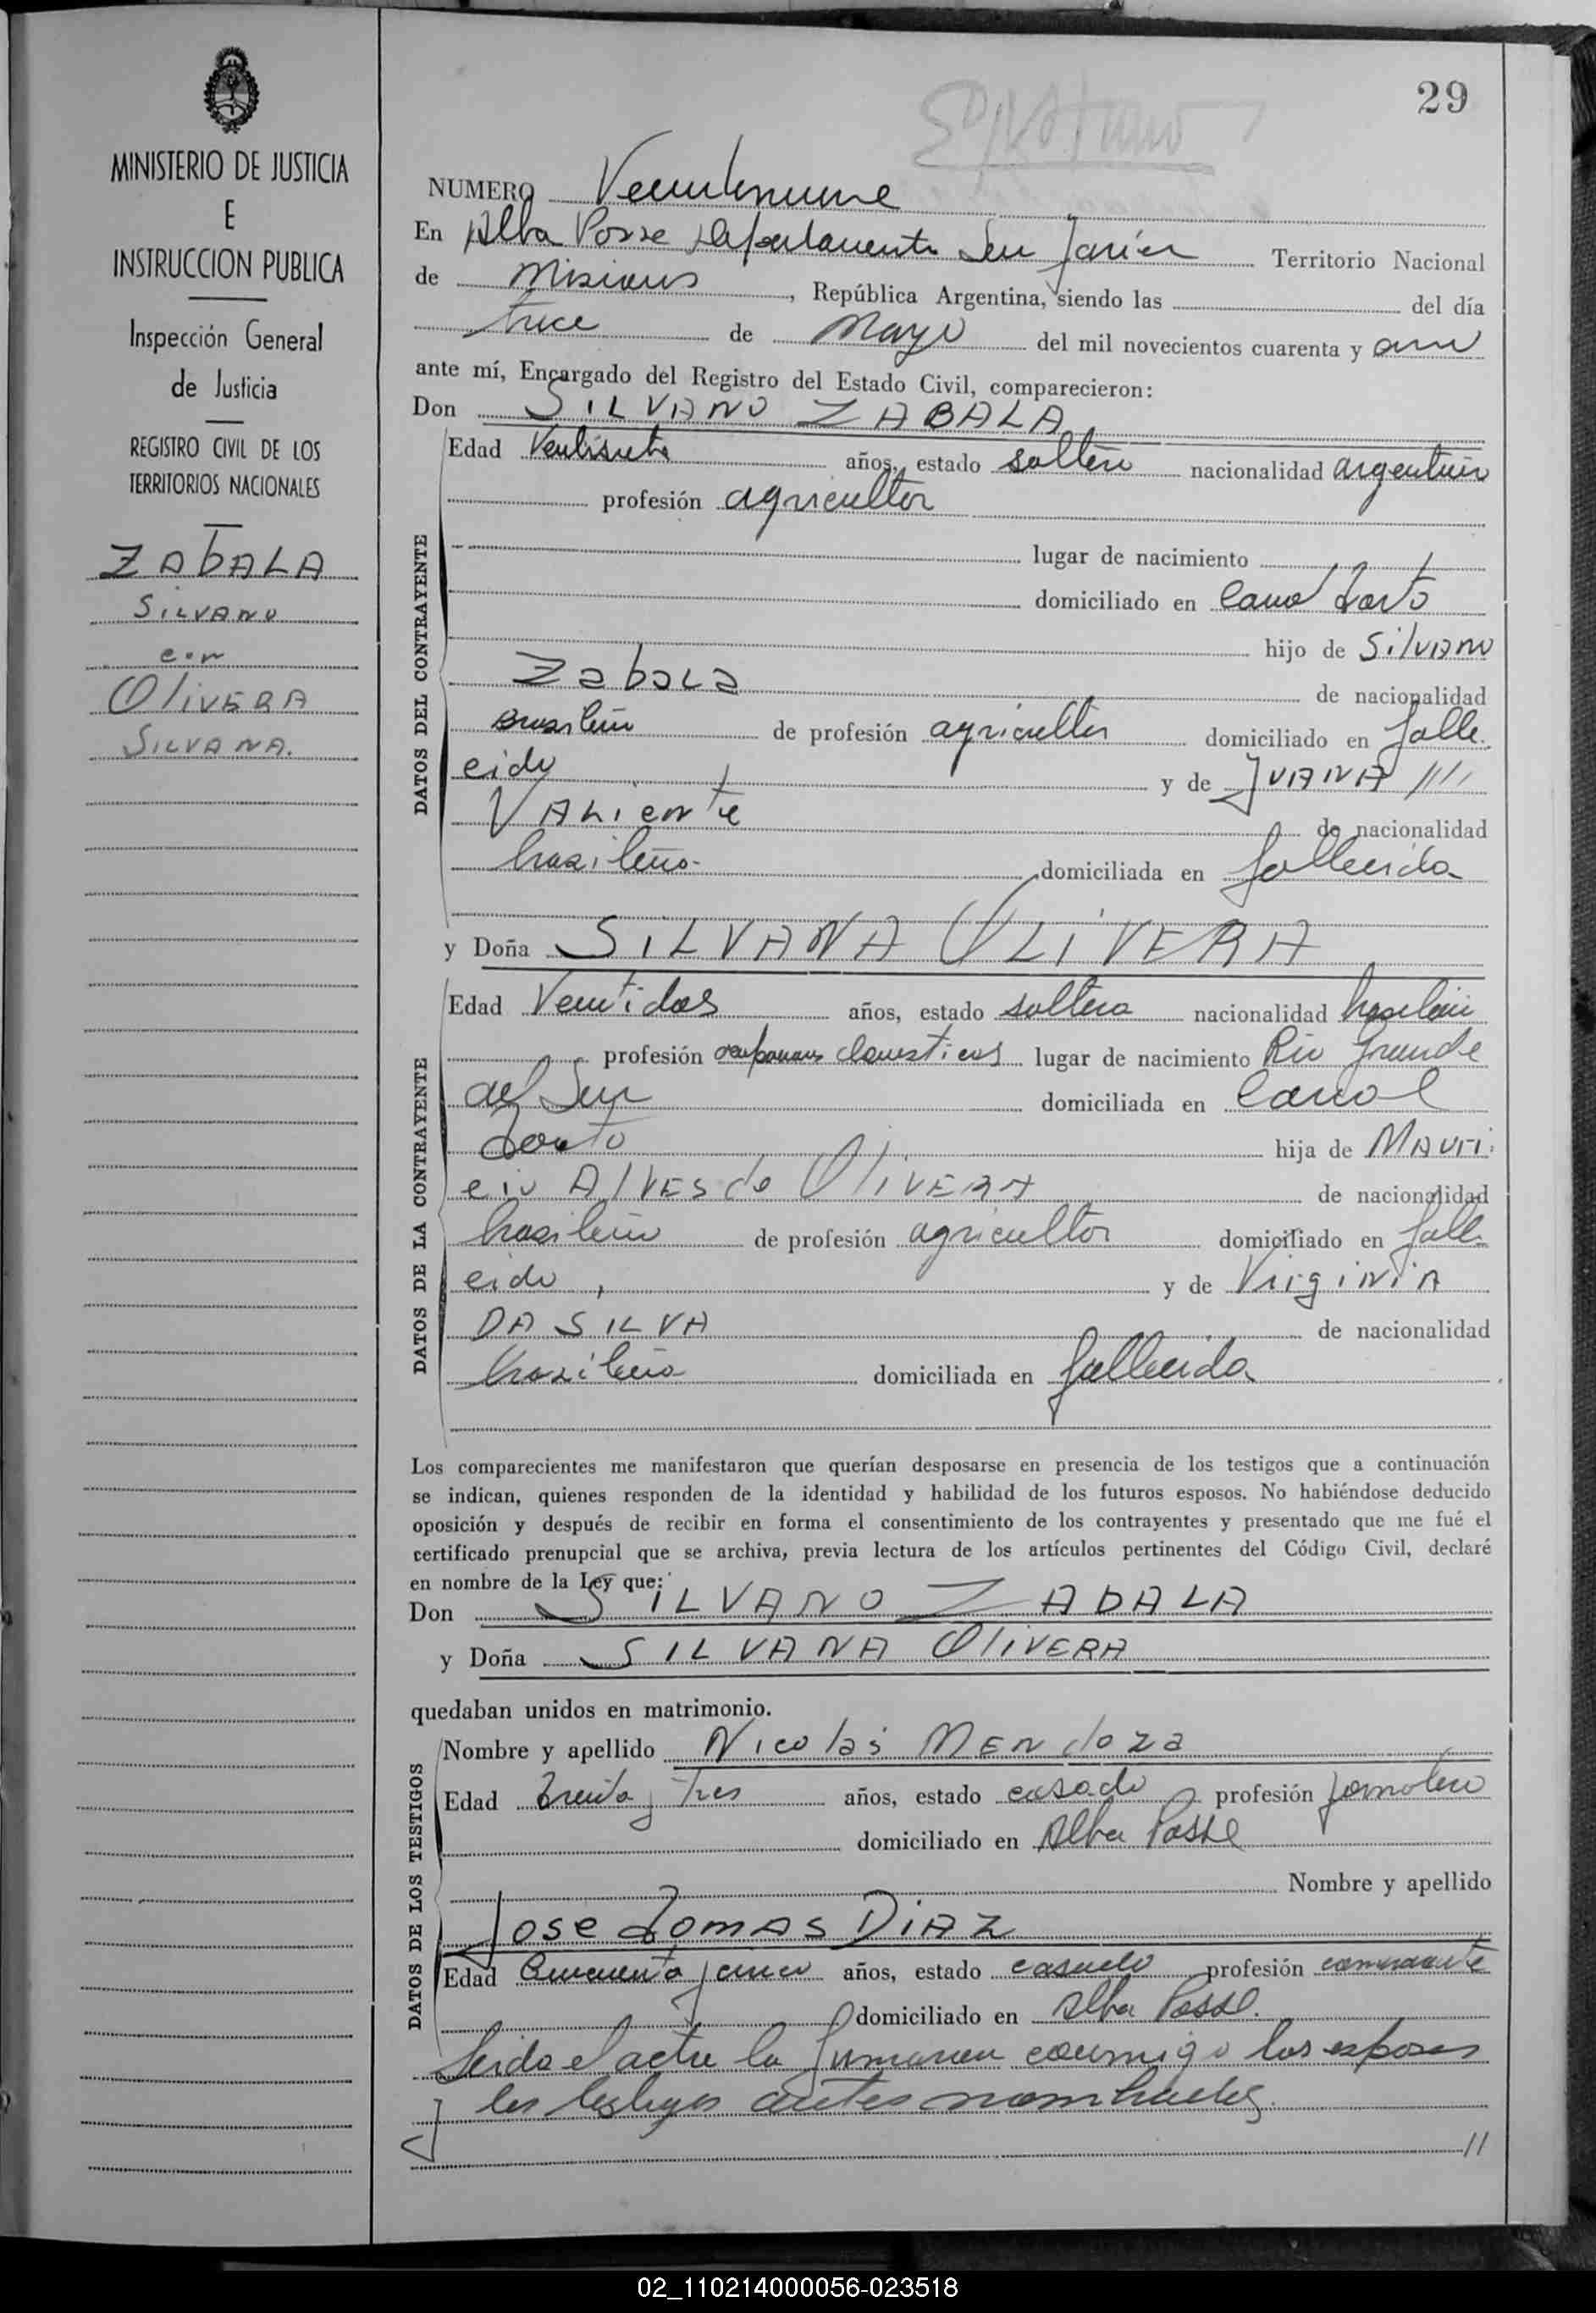 29
MINISTERIO DE JUSTICIA
E
INSTRUCCION PUBLICA
Inspección General
de Justicia
REGISTRO CIVIL DE LOS
TERRITORIOS NACIONALES
ZAbALA
SILVANO
con
OliVERA
SILVANA.
NUMERO Veintinueve
En Alba Posse Departamento San Javier Territorio Nacional
de Misiones, República Argentina, siendo las del día
trece de Mayo del mil novecientos cuarenta y
ante mí, Encargado del Registro del Estado Civil, comparecieron:
Don SILVANO ZABALA
DATOS DEL CONTRAYENTE
Edad Veintisiete años, estado soltero nacionalidad argentino
profesión agricultor
lugar de nacimiento
domiciliado en Canal Torto
hijo de SilVANO
Zabala
de nacionalidad
brasileño de profesión agricultor domiciliado en falle
cido y de JUANA ////
VALiente
de nacionalidad
brasileña- domiciliada en fallecida
y Doña SiLVANA OLiVERA
DATOS DE LA CONTRAYENTE
Edad Veintidos años, estado soltera nacionalidad brasileña
profesión ocupaciones domesticas lugar de nacimiento Rio Grande
del Sur domiciliada en Canal
Torto hija de MAURi
cio AlVES de OliVERA de nacionalidad
brasileño de profesión agricultor domiciliado en falle
cido, y de VirginiA
DA SILVA de nacionalidad
brasileña domiciliada en fallecida
Los comparecientes me manifestaron que querían desposarse en presencia de los testigos que a continuación
se indican, quienes responden de la identidad y habilidad de los futuros esposos. No habiéndose deducido
oposición y después de recibir en forma el consentimiento de los contrayentes y presentado que me fué el
certificado prenupcial que se archiva, previa lectura de los artículos pertinentes del Código Civil, declaré
en nombre de la Ley que:
Don SILVANO ZABALA
y Doña SILVANA OliVERA
quedaban unidos en matrimonio.
DATOS DE LOS TESTIGOS
Nombre y apellido Nicolás MENdoza
Edad Treinta y tres años, estado casado profesión jornalero
domiciliado en Alba Posse
Nombre y apellido
Jose Tomas DiAZ
Edad Cincuenta y cinco años, estado casado profesión comerciante
domiciliado en Alba Posse.
Leida el acta la firmaron conmigo los esposos
y los testigos antes nombrados.
//
02_110214000056-023518